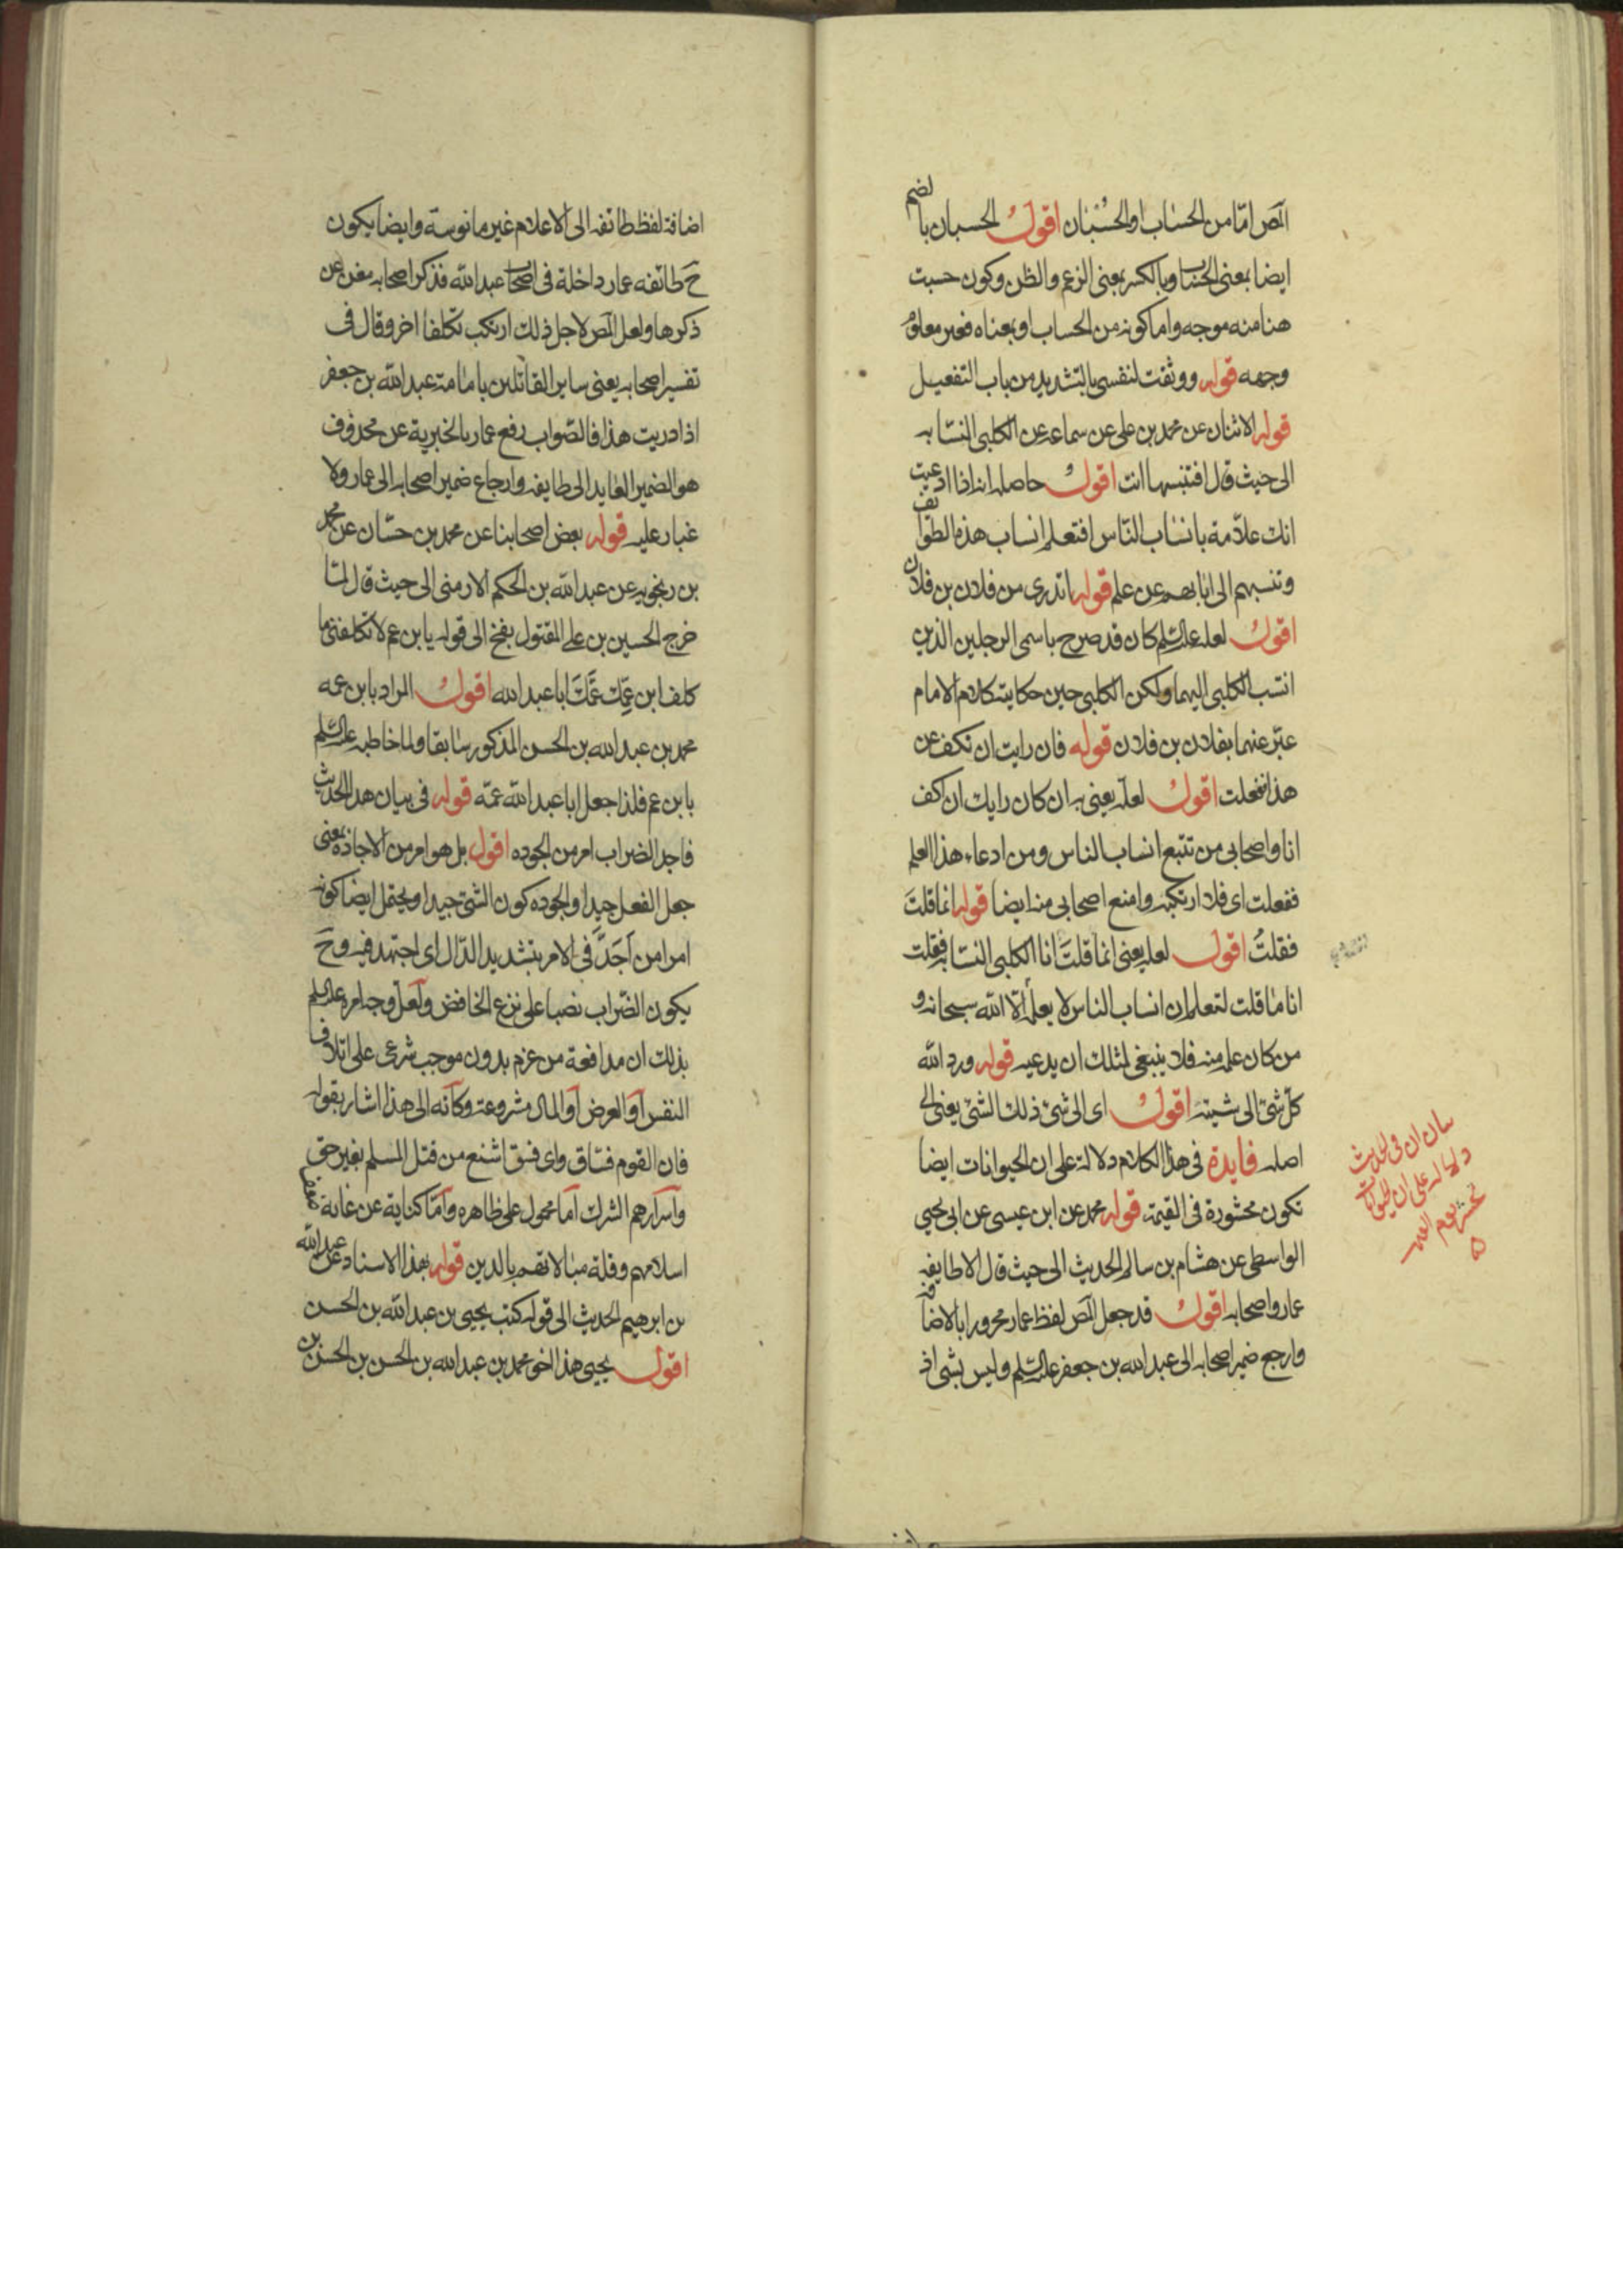 المص اما من الحساب او الحُسْبان اقول الحسبان بالضم
ايضا بمعنى الحساب وبالكسر بمعنى الزعم والظن وكون حسبت
هنا منه موجه واما كونه من الحساب او بمعناه فغير معلوم
وجهه قوله ووثقت لنفسى بالتشديد من باب التفعيل
قوله الاثنان عن محمد بن على عن سماعه عن الكلبى النسابه
الى حيث قال افتنسبها انت اقول حاصله انه اذا ادعيت
انك علامة بانساب الناس افتعلم انساب هذه الطوائف
وتنسبهم الى ابائهم عن علم قوله اتدرى من فلان بن فلان
اقول لعله عليه السلم كان قد صرح باسمى الرجلين الذين
انتسب الكلبى اليهما ولكن الكلبى حين حكايته كلام الامام
عبّر عنهما بفلان بن فلان قوله فان رايت ان تكف عن
هذا ففعلت اقول لعله يعنى به ان كان رايك ان اكف
انا واصحابى من تتبع انساب الناس ومن ادعاء هذا العلم
ففعلت اى فلا ارتكبه وامنع اصحابى منه ايضا قوله انما قلتَ
فقلتُ اقول لعله يعنى انما قلتَ انا الكلبى النسابه فقلت
انا ما قلت لتعلم ان انساب الناس لا يعلمه الا الله سبحانه و
من كان علمه منه فلا ينبغى لمثلك ان يدعيه قوله ورد الله
كل شئ الى شيئه اقول اى الى شئ ذلك الشئ يعنى الى
اصله فايدة فى هذا الكلام دلالة على ان الحيوانات ايضا
تكون محشورة فى القيمة قوله محمد عن ابن عيسى عن ابى يحيى
الواسطى عن هشام بن سالم الحديث الى حيث قال الا طايفه
عمار واصحابه اقول قد جعل المص لفظ عمار مجرورا بالاضافة
وارجع ضمير اصحابه الى عبد الله بن جعفر عليه السلم وليس بشى اذ
بيان ان فى الحديث
دلالة على ان الحيوانات
تحشر يوم القيمه
اضافة لفظ طائفه الى الاعلام غير مانوسة وايضا يكون
ح طائفه عمار داخلة فى اصحاب عبد الله فذكر اصحابه مغن عن
ذكرها ولعل المص لاجل ذلك ارتكب تكلفا اخر وقال فى
تفسير اصحابه يعنى ساير القائلين بامامة عبد الله بن جعفر
اذا دريت هذا فالصواب رفع عمار بالخبرية عن محذوف
هو الضمير العايد الى طايفه وارجاع ضمير اصحابه الى عمار ولا
غبار عليه قوله بعض اصحابنا عن محمد بن حسّان عن محمد
بن رنجويه عن عبد الله بن الحكم الارمنى الى حيث قال لما
خرج الحسين بن على المقتول بفخ الى قوله يا بن عم لا تكلفنى ما
كلف ابن عمك عمّكَ ابا عبد الله اقول المراد بابن عمه
محمد بن عبد الله بن الحسن المذكور سابقا ولما خاطبه عليه السلم
بابن عم فلذا جعل ابا عبد الله عمه قوله فى بيان هذا الحديث
فاجد الضراب امر من الجوده اقول بل هو امر من الاجاده بمعنى
جعل الفعل جيدا والجوده كون الشئ جيدا ويحتمل ايضا كونه
امرا من اَجَدَّ فى الامر بتشديد الدال اى اجتهد فيه وح
يكون الضراب نصبا على نزع الخافض ولعل وجه امره عليه السلم
بذلك ان مدافعة من عزم بدون موجب شرعى على اتلاف
النفس او العرض او المال مشروعة وكانه الى هذا اشار بقوله
فان القوم فسّاق واى فسق اشنع من قتل المسلم بغير حق
واسرارهم الشرك اما محمول على ظاهره واما كناية عن غاية ضعف
اسلامهم وقلة مبالاتهم بالدين قوله بهذا الاسناد عن عبد الله
بن ابرهيم الحديث الى قوله كتب يحيى بن عبد الله بن الحسن
اقول يحيى هذا اخو محمد بن عبد الله بن الحسن بن الحسن بن